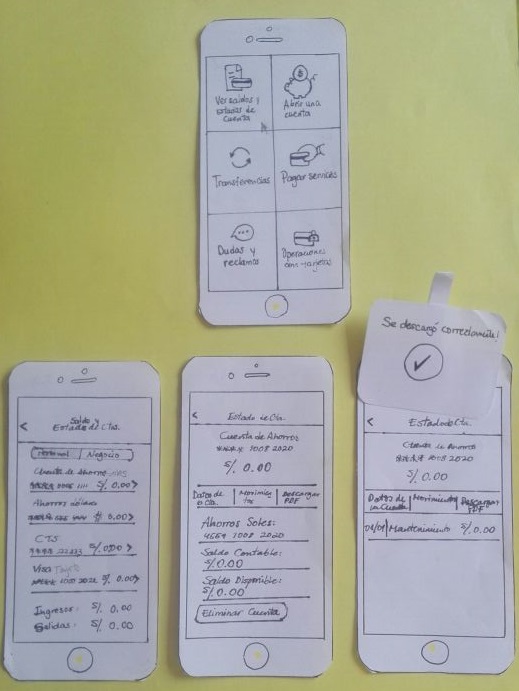 Ver saldos y
estados de
cuenta
Abrir una
cuenta
Transferencias
Pagar servicios
Dudas y
reclamos
Operaciones
con tarjetas
<
Saldo y
Estado de Cta.
Personal | Negocio
Cuenta de Ahorros
S/ 0.00>
Ahorros
0.00>
CTS
S/ 0.00 >
Visa
S/. 0.00>
Ingresos: S/ 0.00
Salidas: S/ 0.00
<
Estado de Cta.
Cuenta de Ahorros
**** 1008 2020
S/ 0.00
Datos de
la Cta. | Movimien
tos | Descargar
PDF
Ahorros Soles:
1008 2020
Saldo Contable:
S/0.00
Saldo Disponible:
S/0.00
Eliminar Cuenta
Se descargó correctamente!
<
Estado de Cta.
Cuenta de Ahorros
**** 1008 2020
S/ 0.00
Datos de
la Cuenta | Movimientos | Descargar
PDF
Mantenimiento S/. 0.00